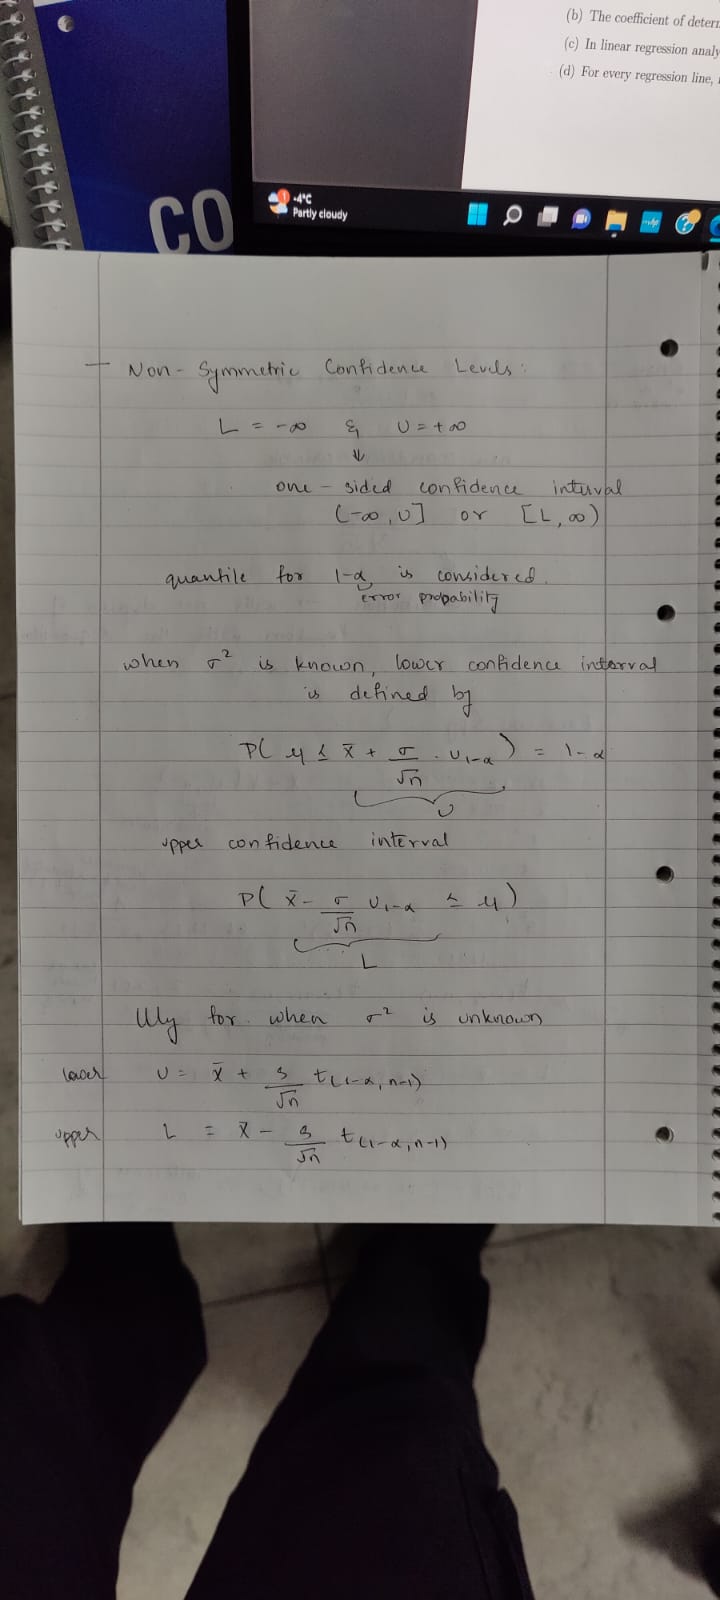 (b) The coefficient of deter
(c) In linear regression analy
(d) For every regression line,
CO
1
-4°C
Partly cloudy
— Non-Symmetric Confidence Levels:
L = -∞ & U = +∞
⇓
one-sided confidence interval
(-∞, U] or [L, ∞)
quantile for 1-α is considered.
error probability
when σ² is known, lower confidence interval
is defined by
P( μ ≤ x̄ + σ/√n · U₁₋α ) = 1-α
U
upper confidence interval
P( x̄ - σ/√n U₁₋α ≤ μ )
L
llly for when σ² is unknown
lower U = x̄ + s/√n t(1-α, n-1)
upper L = x̄ - s/√n t(1-α, n-1)